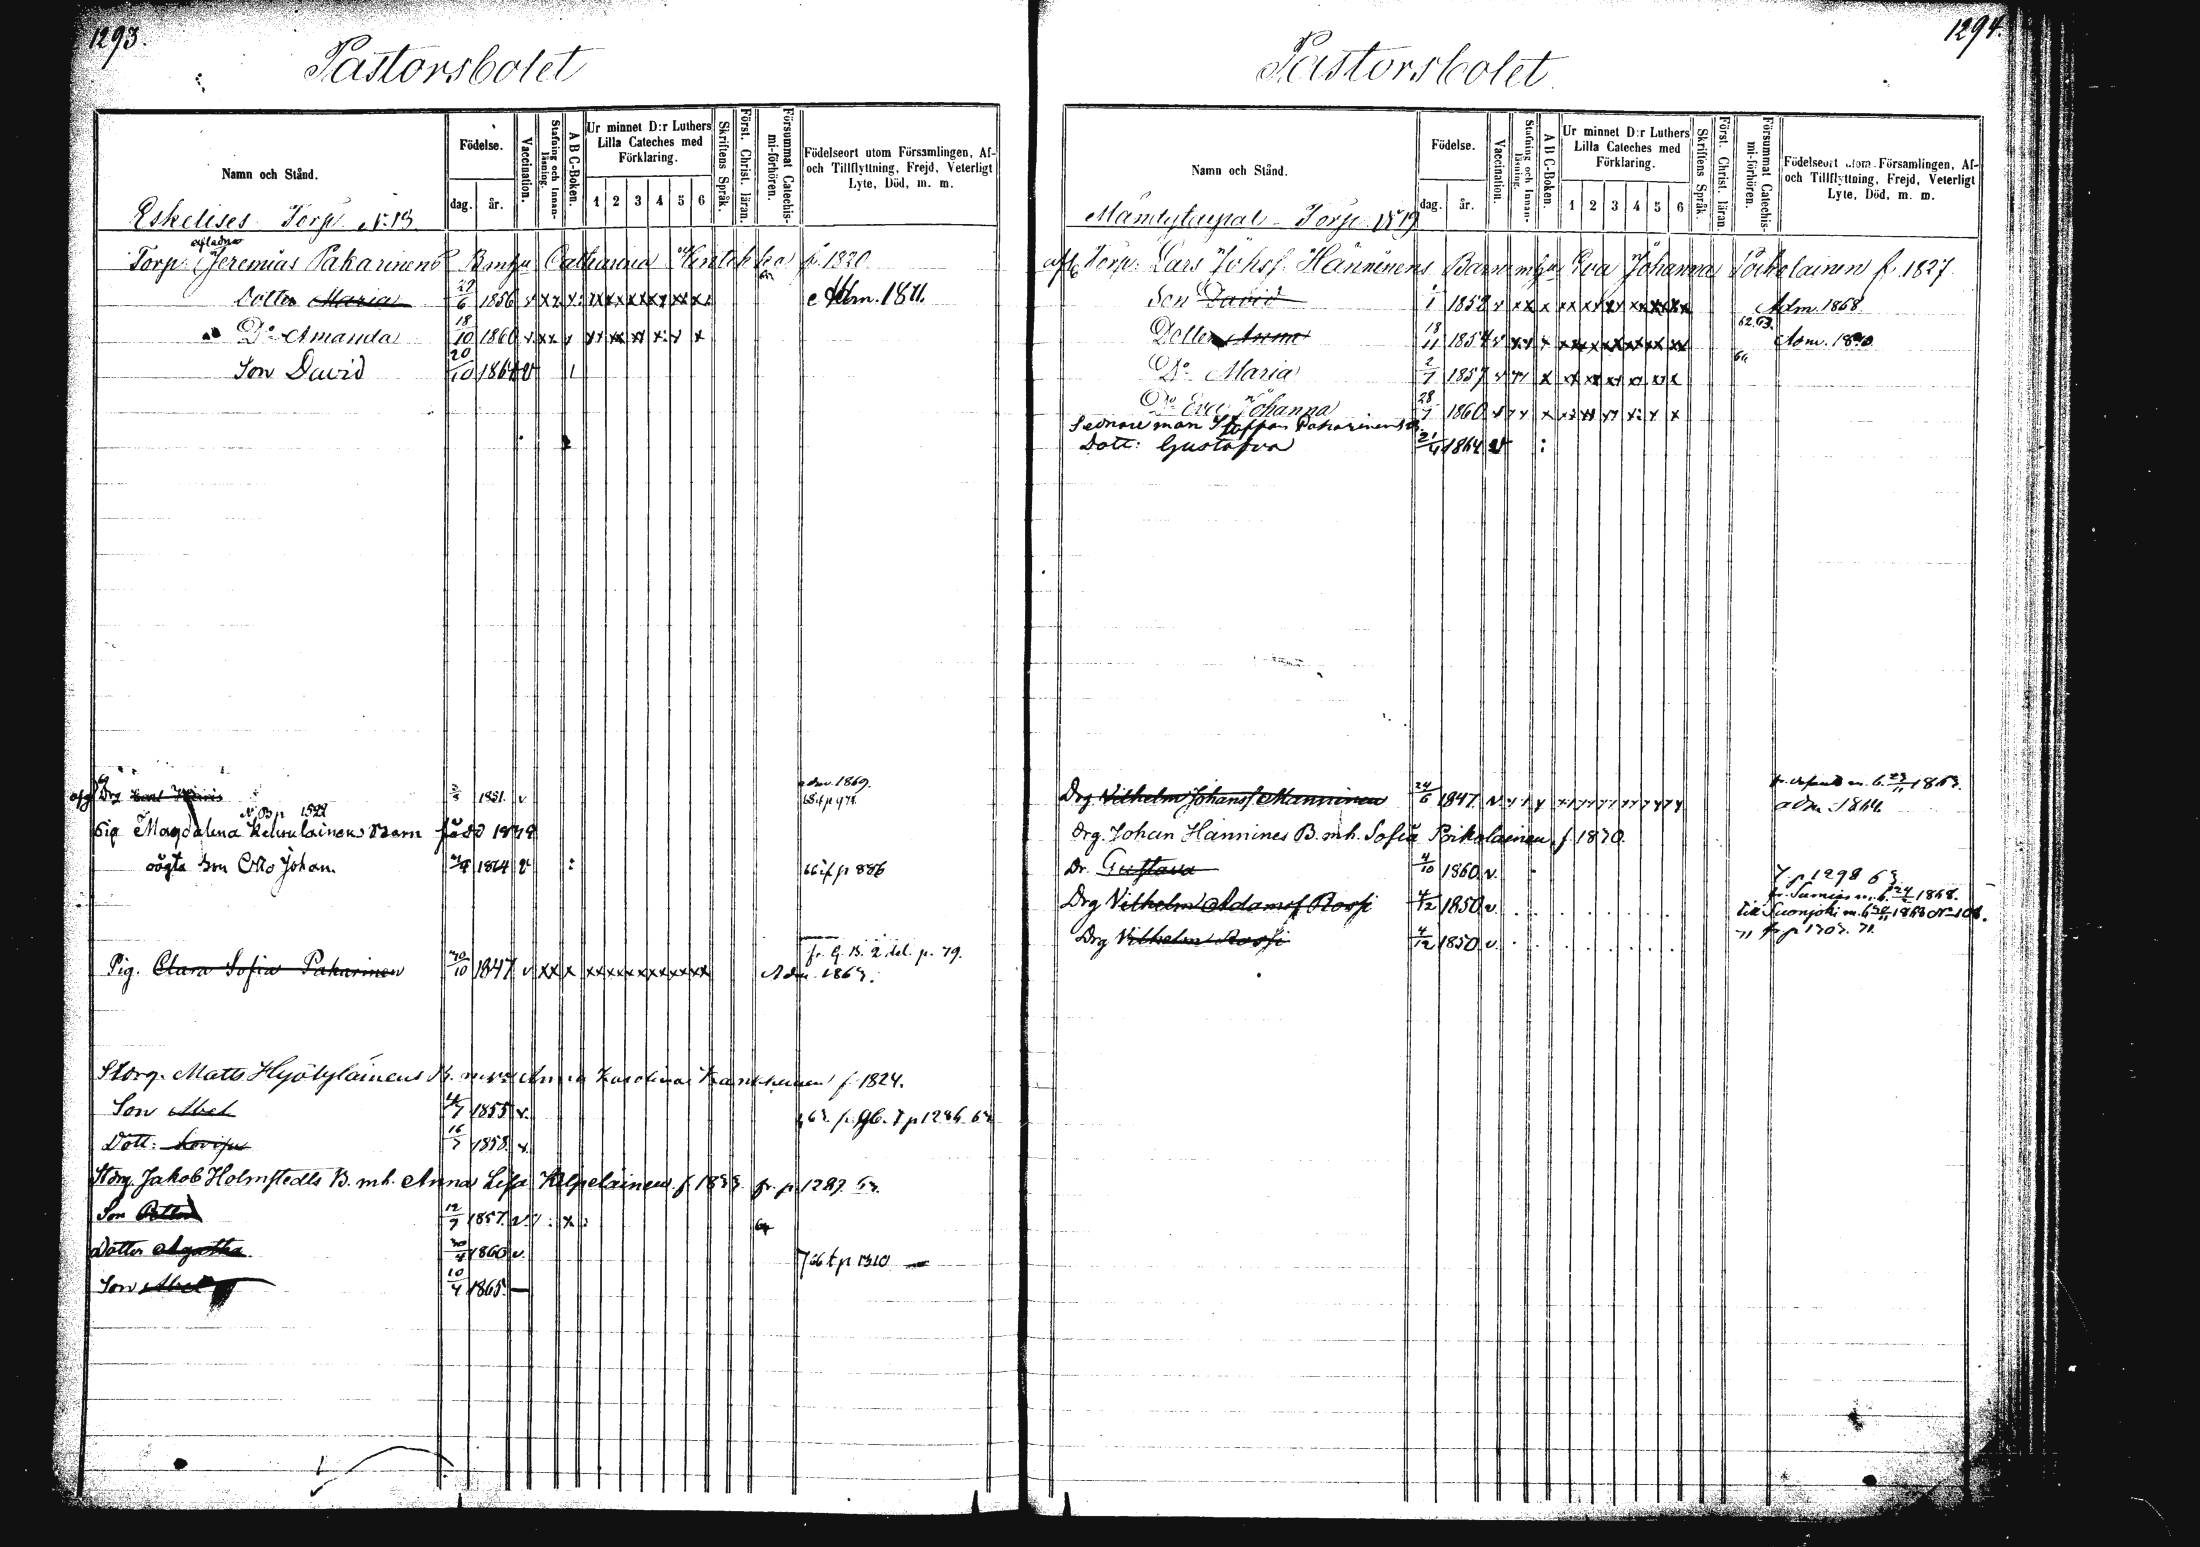 1293.
Pastorsbolet
Namn och Stånd.
Födelse.
dag.
år.
Vaccination.
Stafning och Innanläsning.
A B C-Boken.
Ur minnet D:r Luthers Lilla Cateches med Förklaring.
1 2 3 4 5 6
Skriftens Språk.
Först. Christ. läran.
Försummat Catechismi-förhören.
Födelseort utom Församlingen, Af- och Tillflyttning, Frejd, Veterligt Lyte, Död, m. m.
Eskelises Torp N:o 13
aflidne
Torp. Jeremias Pakarinens Catharina f. 1820
Dotter Maria 29/6 1856 v Adm. 1871.
D:o Amanda 18/10 1860 v
Son David 20/10 1864 v
afg Drg 1851. v adm. 1869.
Pig Magdalena Barn född 1842
oägta Son Otto Johan. 1864 v 66 t p 886
fr. G. B. 2 del. p. 79.
Pig. Clara Sofia Pakarinen 30/10 1847 v Adm. 1863.
Storg. Matts Hyötyläinens B. m. Anna Karolina f. 1824.
Son Abel 4/7 1855 v.
Dott: Lovisa 16/7 1858. v.
Storg. Jakob Holmstedts B. mh. Anna Lisa Kilpeläinen f. 1833 fr. p. 1287. 63.
Son 12/7 1857. v
Dotter Agatha 30/4 1860 v. 66 t p 1310
Son Abel 10/4 1865. —
1294.
Pastorsbolet
Namn och Stånd.
Födelse.
dag.
år.
Vaccination.
Stafning och Innanläsning.
A B C-Boken.
Ur minnet D:r Luthers Lilla Cateches med Förklaring.
1 2 3 4 5 6
Skriftens Språk.
Först. Christ. läran.
Försummat Catechismi-förhören.
Födelseort utom Församlingen, Af- och Tillflyttning, Frejd, Veterligt Lyte, Död, m. m.
Torp N:o 19
Torp. Lars Johsf. Hänninens Barn m hu Eva Johanna Poikolainen f. 1827.
Son David 1/1 1852 v Adm. 1868.
Dotter Anna 18/11 1854 v 62.63. Adm. 1870
D:o Maria 2/7 1857 v
D:o Eva Johanna 28/7 1860 v
Sednare man Staffan Pakarinens B.
Dott: Gustafva 21/4 1864 v
Drg Vilhelm Johansf Manninen 24/6 1847. v adm. 1864.
Drg. Johan Hännines B. mh. Sofia Poikolainen f. 1830.
Dr. Gustava 4/10 1860. v. p 1298 63
Drg Vilhelm Adamsf Rossi 4/12 1850 v. fr. Sumiais m. b. 24/2 1868.
till Suonjoki m. b. 1868 N:o 108.
Drg Vilhelm Rossi 4/12 1850 v. 71 fr p 1303. 71.